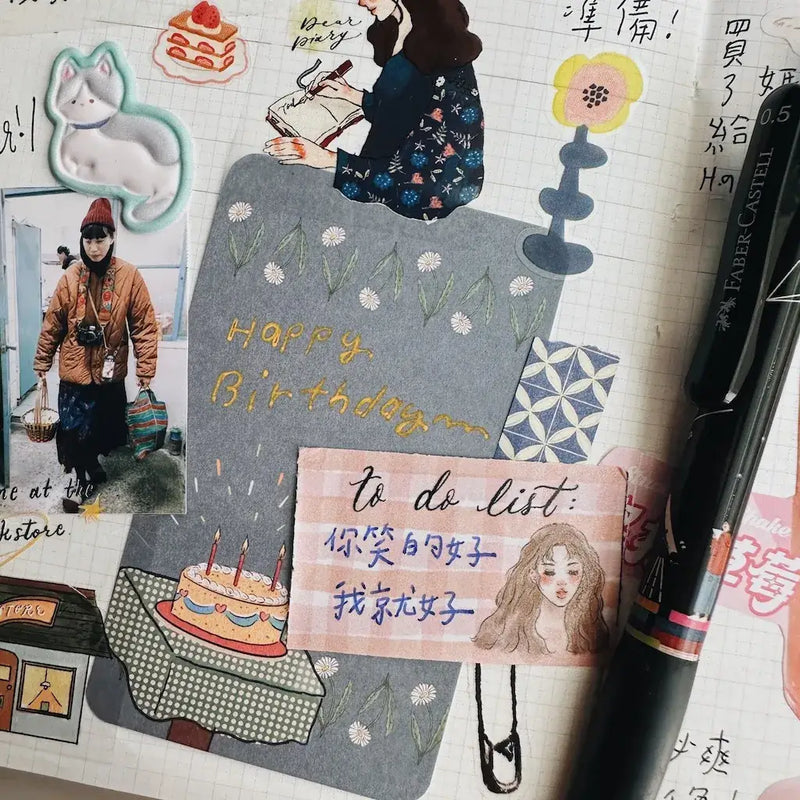 Dear
Diary
準備!
買了
給
媽
0.5
FABER-CASTELL
Happy
Birthday
to do list:
你笑的好
我就好
at the
STORE
爽